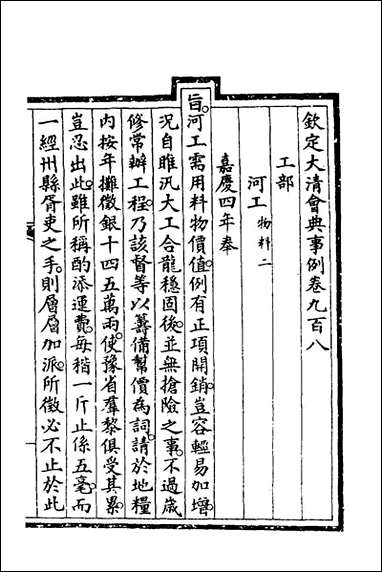 欽定大清會典事例卷九百八
工部
河工物料二
嘉慶四年奉
旨。河工需用料物價值。例有正項開銷。豈容輕易加增。
況自睢汛大工合龍穩固後。並無搶險之事。不過歲
修常辦工程。乃該督等以籌備幫價為詞。請於地糧
內按年攤徵銀十四五萬兩。使豫省羣黎俱受其累。
豈忍出此。雖所稱酌添運費。每稭一斤止係五毫。而
一經州縣胥吏之手。則層層加派。所徵必不止於此